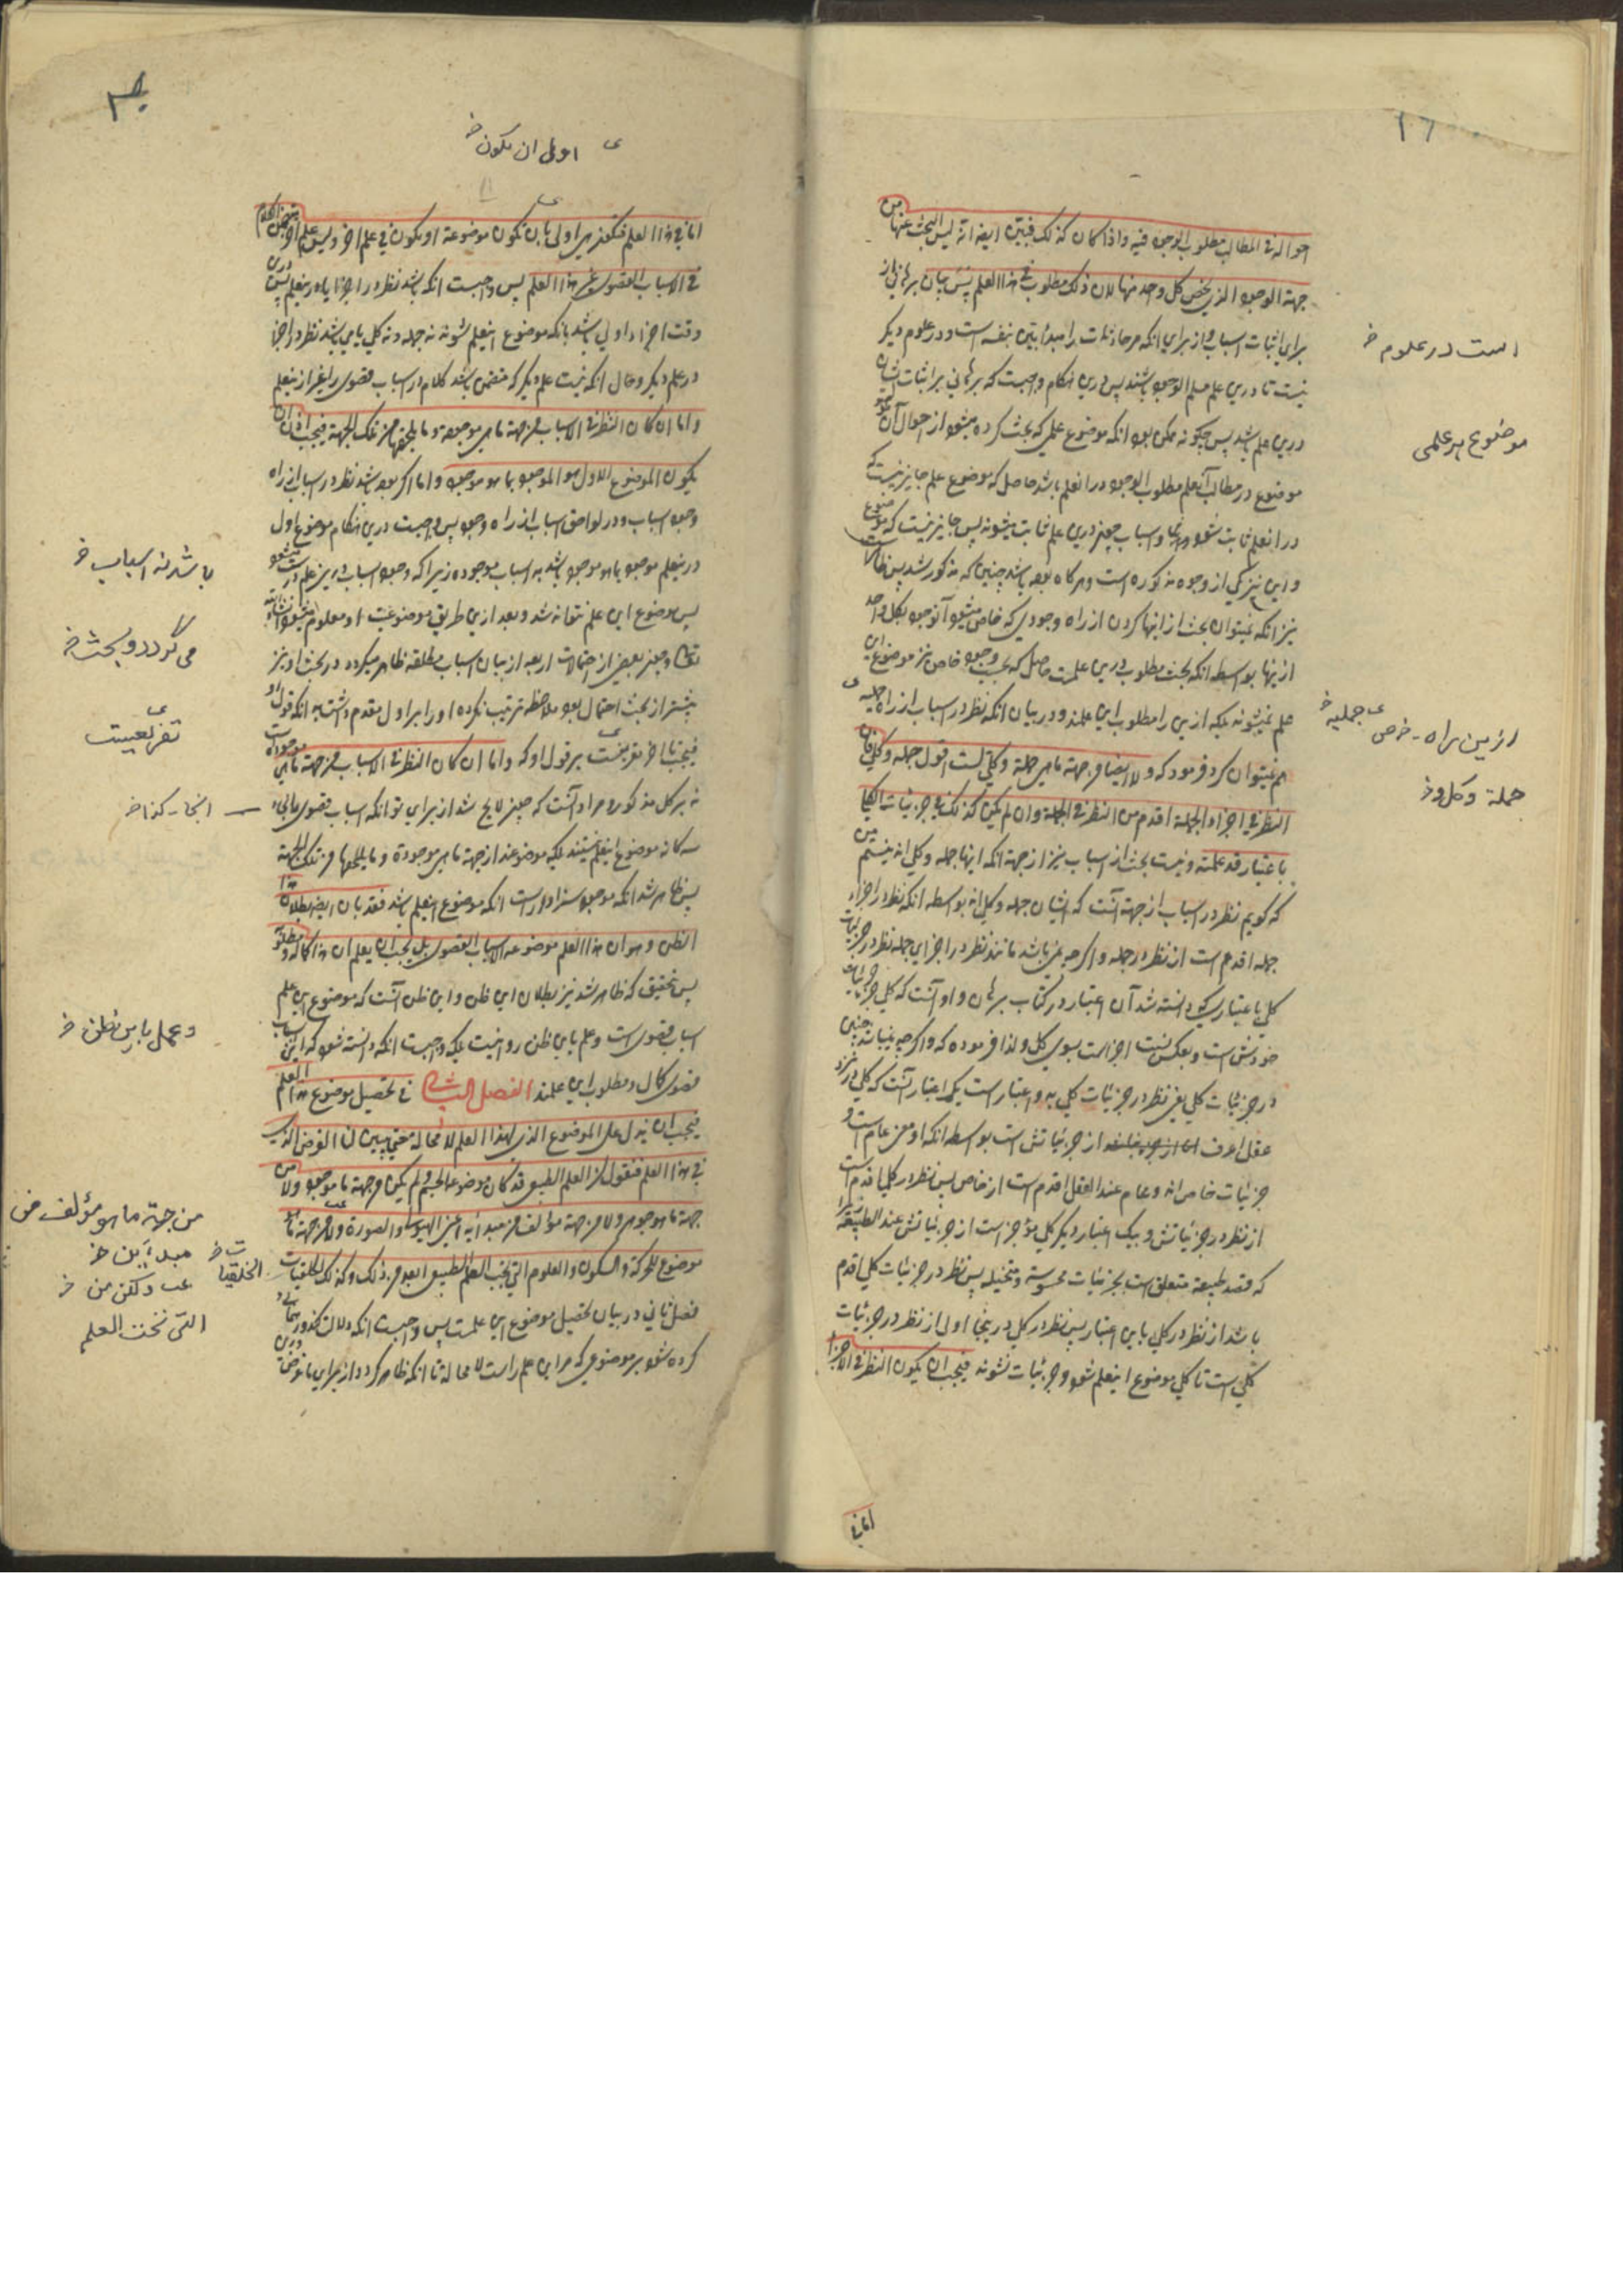 ١٦
احواله فی المطالب مطلوب الوجود فیه واذا کان کذلک فبیّن ایضا انه لیس البحث عنها من
جهة الوجود الذی یخص کل واحد منها لان ذلک مطلوب فی هذا العلم پس بیان برهانی از
برای اثبات اسباب از برای انکه مر حادثات را مبدا بیّن بنفسه است و در علوم دیکر
نیست تا درین علم مسلم الوجود باشند پس درین هنکام واجبست که برهانی بر اثبات ایشان
درین علم باشد پس چکونه ممکن بود انکه موضوع علمی که بحث کرده میشود از احوال آن
موضوع در مطالب آنعلم مطلوب الوجود در انعلم باشد حاصل که موضوع علم جایز نیست که
در انعلم ثابت شود و اسباب چون درین علم ثابت میشوند پس جایز نیست که موضوع
و این نیز یکی از وجوه مذکوره است و هر کاه بوده باشد چنین که مذکور شد پس ظاهر است
نیز انکه نمیتوان بحث از اینها کردن از راه وجودی که خاص میشود آنوجود بکل واحد
از اینها بواسطه انکه بحث مطلوب درین علمست حاصل که بحسب وجود خاص نیز موضوع این
علم نمیشوند بلکه ازین را مطلوب این علمند و در بیان انکه نظر در اسباب از راه جملیه
هم نمیتوان کرد فرمود که ولا ایضا من جهة ما هی جملة وکل لست اقول جملی وکلی فان
النظر فی اجزاء الجملة اقدم من النظر فی الجملة وان لم یکن کذلک فی جزئیات الکلی
باعتبار قد علمته و نیست بحث از اسباب نیز از جهت انکه اینها جمله و کل اند نیستم من
که کویم نظر در اسباب از جهت آنست که ایشان جمله و کل اند بواسطه انکه نظر در اجزاء
جمله اقدم است از نظر در جمله و اکرچه نمی باشد مانند نظر در اجزای جمله نظر در جزئیات
کلی باعتباری که دانسته شد آن اعتبار در کتاب برهان و او آنست که کلی جزئیات
خودش است و بعکس نسبت اجزاست بسوی کل و لذا فرموده که و اکرچه نمیباشد چنین
در جزئیات کلی یعنی نظر در جزئیات کلی به دو اعتبار است یکی اعتبار آنست که کلی در نزد
عقل اعرف از جزئیاتش است بواسطه انکه او معنی عام است و
جزئیات خاص اند و عام عند العقل اقدم است از خاص پس نظر در کلی اقدم است
از نظر در جزئیاتش و بیک اعتبار دیکر کلی مؤخر است از جزئیاتش عند الطبیعة زیرا
که قصد طبیعة متعلق است بجزئیات محسوسة و متخیله پس نظر در جزئیات کلی اقدم
باشد از نظر در کلی باین اعتبار پس نظر در کلی درینجا اولی از نظر در جزئیات
کلی است تا کلی موضوع اینعلم شود و جزئیات نشوند فیجب ان یکون النظر فی الاجزا
اما فی
است در علوم خ
موضوع هر علمی
ازین راه - خ ص جملیه خ
جملة وکل و خ
اولی ان یکون خ
اما فی هذا العلم فتکون هی اولی بان تکون موضوعة او یکون فی علم اخر ولیس علم اخر یتضمن الکلام
فی الاسباب القصوی غیر هذا العلم پس واجبست انکه باشد نظر در اجزا یا در ینعلم پس درین
وقت اجزاء اولی باشد بانکه موضوع اینعلم شوند نه جمله و نه کل یا می باشد نظر در اجزا
در علم دیکر و حال انکه نیست علم دیکر که متضمن باشد کلام در اسباب قصوی را غیر از ینعلم
واما ان کان النظر فی الاسباب من جهة ما هی موجودة وما یلحقها من تلک الجهة فیجب اذن ان
یکون الموضوع الاول هو الموجود بما هو موجود و اما اکر بوده باشد نظر در اسباب از راه
وجود اسباب و در لواحق اسباب از راه وجود پس واجبست درین هنکام موضوع اول
در ینعلم موجود بما هو موجود باشد نه اسباب موجوده زیرا که وجود اسباب درین علم درست میشود
پس موضوع این علم نتواند شد و بعد ازین طریق موضوعیت او معلوم میشود انشاء الله
تعالی و چون بعضی از احتمالات اربعه از بیان اسباب مطلقه ظاهر میکردد در بحث او نیز
پیشتر از بحث احتمال بود ملاحظه ترتیب نکرده او را بر اول مقدم داشت به انکه قول او
فیجب تا اخر تفریعیست بر قول او که و اما ان کان النظر فی الاسباب من جهة ما هی موجودة است
نه بر کل مذکور و مراد آنست که چون لایح شد از برای تو انکه اسباب قصوی
سه کانه موضوع اینعلم نیستند بلکه موضوعند از جهة ما هی موجودة و ما یلحقها من تلک الجهة
پس ظاهر شد انکه موجود سزاوار است انکه موضوع اینعلم باشد فقد بان ایضا بطلان هذا
الظن وهو ان هذا العلم موضوعه الاسباب القصوی بل یجب ان یعلم ان هذا کماله ومطلوبه
پس بتحقیق که ظاهر شد نیز بطلان این ظن و این ظن آنست که موضوع این علم
اسباب قصوی است و علم باین ظن روا نیست بلکه واجبست انکه دانسته شود که این اسباب
قصوی کمال و مطلوب این علمند الفصل الثانی فی تحصیل موضوع هذا العلم
فیجب ان ندل علی الموضوع الذی لهذا العلم لا محالة حتی یتبین لنا الغرض الذی
فی هذا العلم فنقول ان العلم الطبیعی قد کان موضوعه الجسم ولم یکن من جهة ما هو موجود ولا من
جهة ما هو جوهر ولا من جهة ما هو مؤلف من مبدأیه اعنی الهیولی والصورة ولکن من جهة ما هو
موضوع للحرکة والسکون والعلوم التی تحت العلم الطبیعی ابعد من ذلک وکذلک الخلقیات
فصل ثانی در بیان تحصیل موضوع این علمست پس واجبست انکه دلالت
کرده شود بر موضوعی که مر این علم راست لا محاله تا انکه ظاهر کردد از برای ما غرض
باشد نه اسباب خ
می کردد و بحث خ
تفریعیست
انجا - کذا خ
و عمل باین ظن خ
من جهة ما هو مؤلف من
مبدأین خ
الخلقیات خ
ولکن من خ
التی تحت العلم